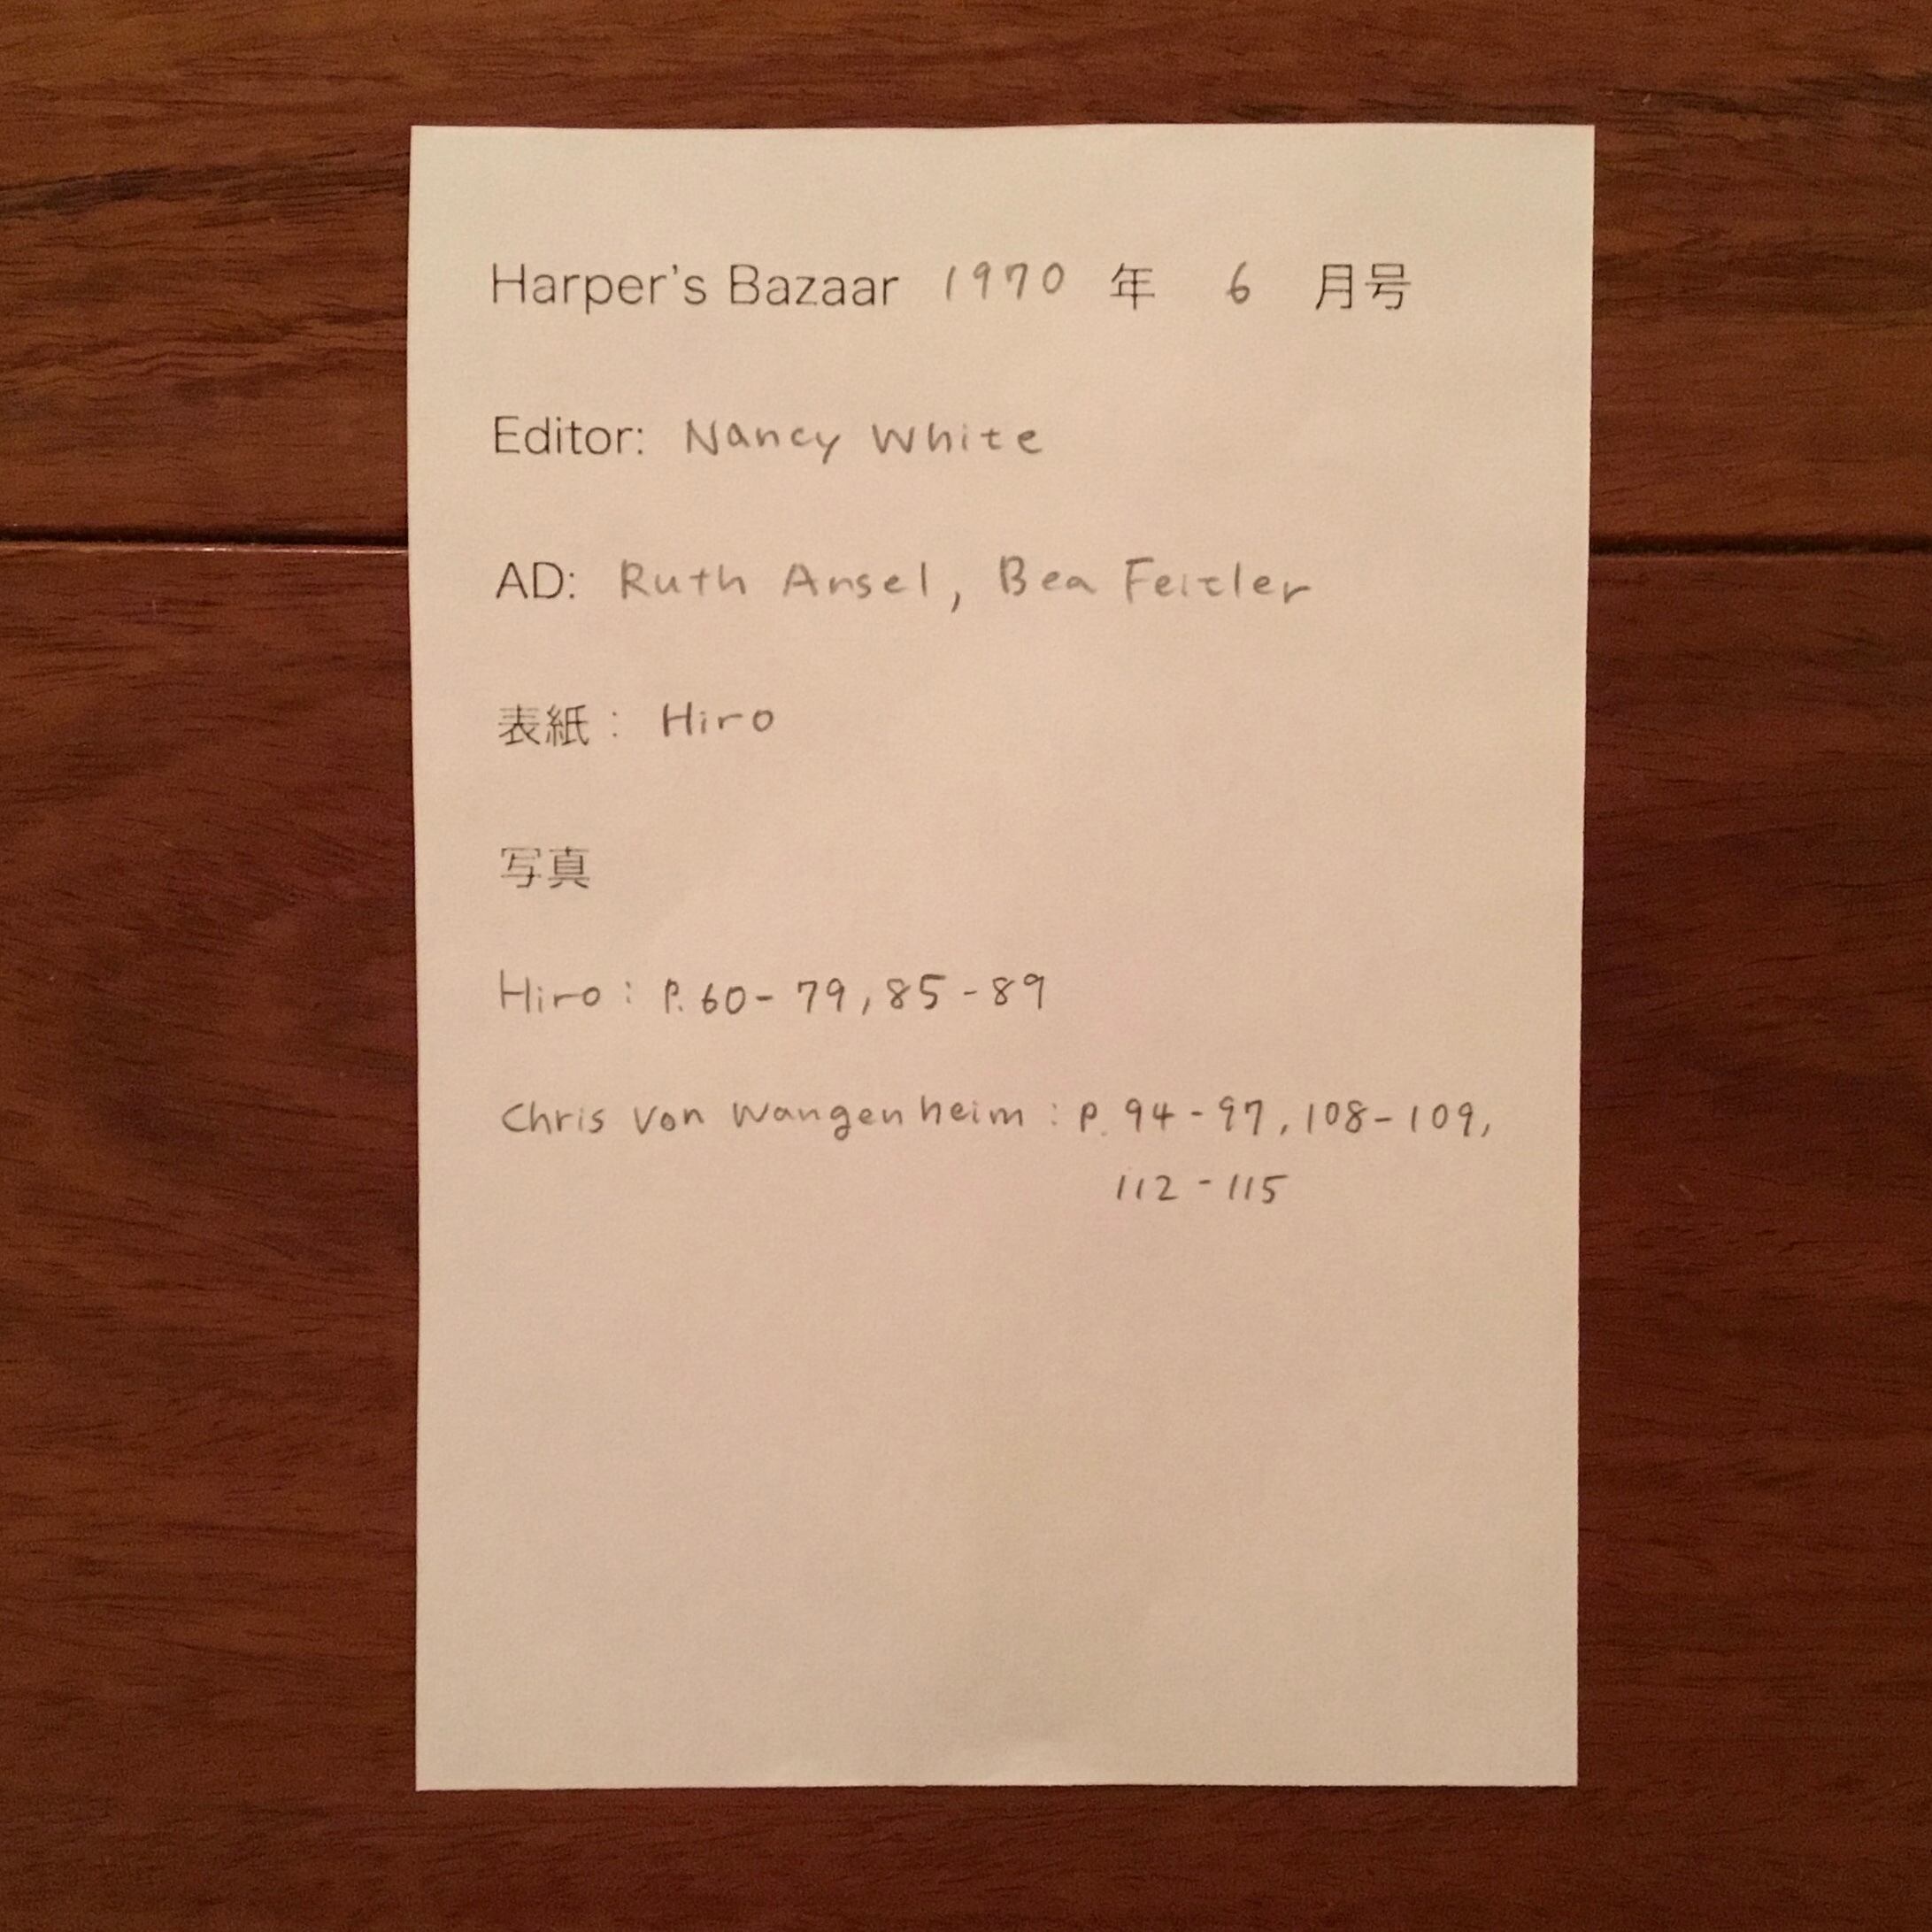 Harper's Bazaar 1970 年 6 月号
Editor: Nancy White
AD: Ruth Ansel, Bea Feitler
表紙: Hiro
写真
Hiro: P.60-79,85-89
Chris Von Wangenheim: P.94-97,108-109,
112-115